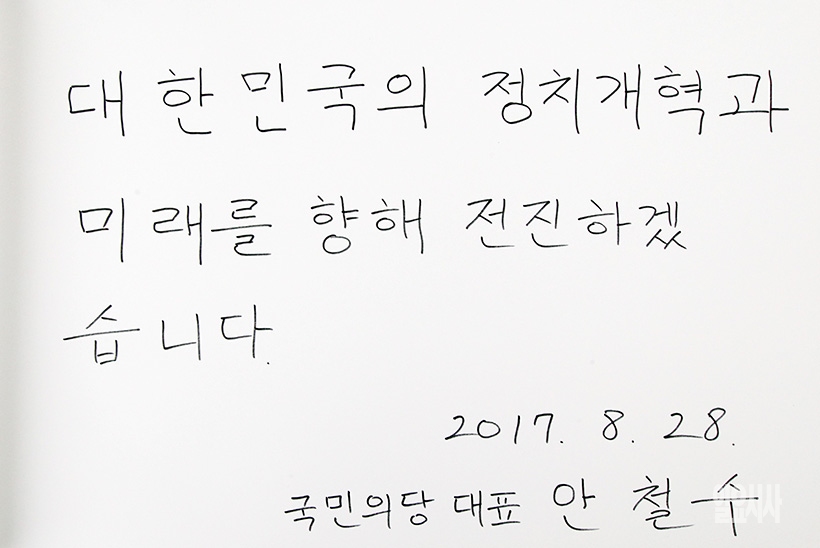 대한민국의 정치개혁과
미래를 향해 전진하겠
습니다.
2017. 8. 28.
국민의당 대표 안 철 수